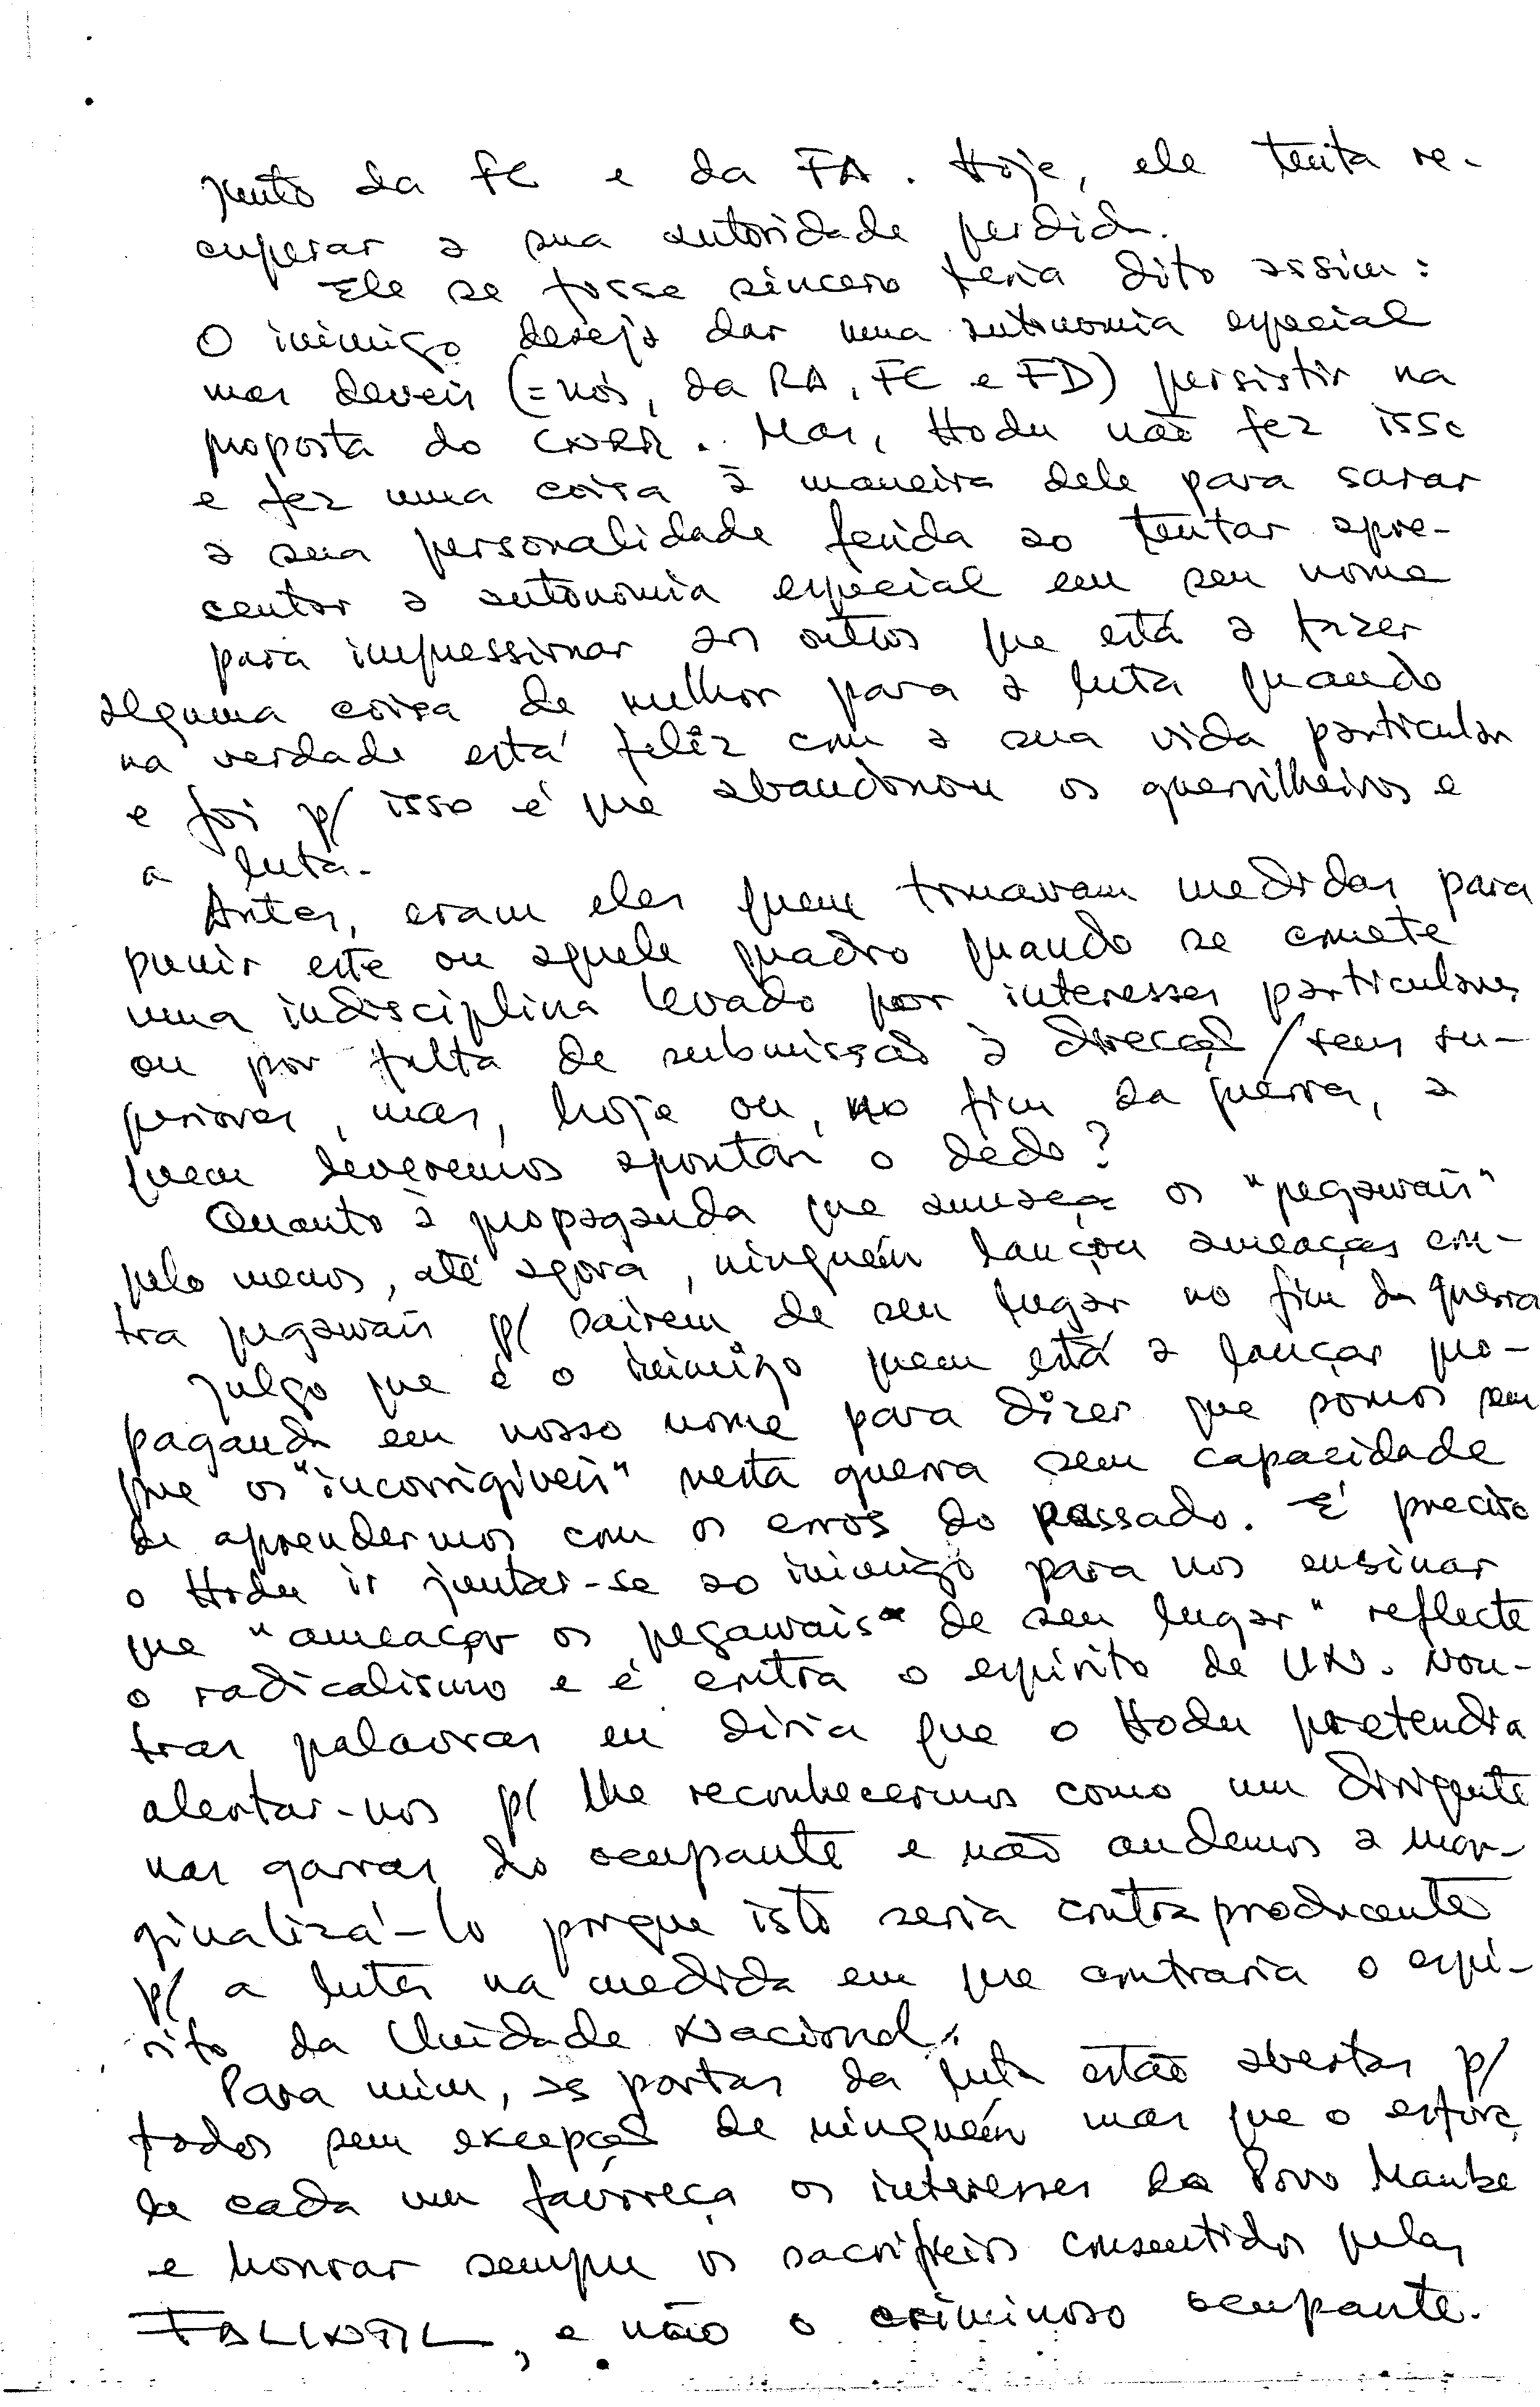 junto da FC e da FA. Hoje, ele tenta re-
cuperar a sua autoridade perdida.
Ele se fosse sincero teria dito assim:
O inimigo deseja dar uma autonomia especial
mas deveis (=nós, da RA, FC e FD) persistir na
proposta do CNRM. Mas, Hodu não fez isso
e fez uma coisa à maneira dele para sarar
a sua personalidade ferida ao tentar apre-
sentar a autonomia especial em seu nome
para impressionar aos outros que está a fazer
alguma coisa de melhor para a luta quando
na verdade está feliz com a sua vida particular
e foi p/ isso é que abandonou os guerrilheiros e
a luta.
Antes, eram eles quem tomavam medidas para
punir este ou aquele quadro quando se comete
uma indisciplina levado por interesses particulares
ou por falta de submissão à direcção/seus su-
periores, mas, hoje ou, no fim da guerra, a
quem deveremos apontar o dedo?
Quanto à propaganda que ameaça os "pegawais"
pelo menos, até agora, ninguém lançou ameaças con-
tra pegawais p/ sairem de seu lugar no fim da guerra
Julgo que é o inimigo quem está a lançar pro-
paganda em nosso nome para dizer que somos sem
pre os "incorrigíveis" nesta guerra sem capacidade
de aprendermos com os erros do passado. É preciso
o Hodu ir juntar-se ao inimigo para nos ensinar
que "ameaçar os pegawais de seu lugar" reflecte
o radicalismo e é contra o espírito de UN. Nou-
tras palavras eu diria que o Hodu pretendia
alertar-nos p/ lhe reconhecermos como um dirigente
nas garras do ocupante e não andemos a mar-
ginalizá-lo porque isto seria contraproducente
p/ a luta na medida em que contraria o espí-
rito da Unidade Nacional.
Para mim, as portas da luta estão abertas p/
todos sem excepção de ninguém mas que o esforço
de cada um favoreça os interesses do Povo Maubere
e honrar sempre os sacrifícios consentidos pelas
FALINTIL, e não o criminoso ocupante.